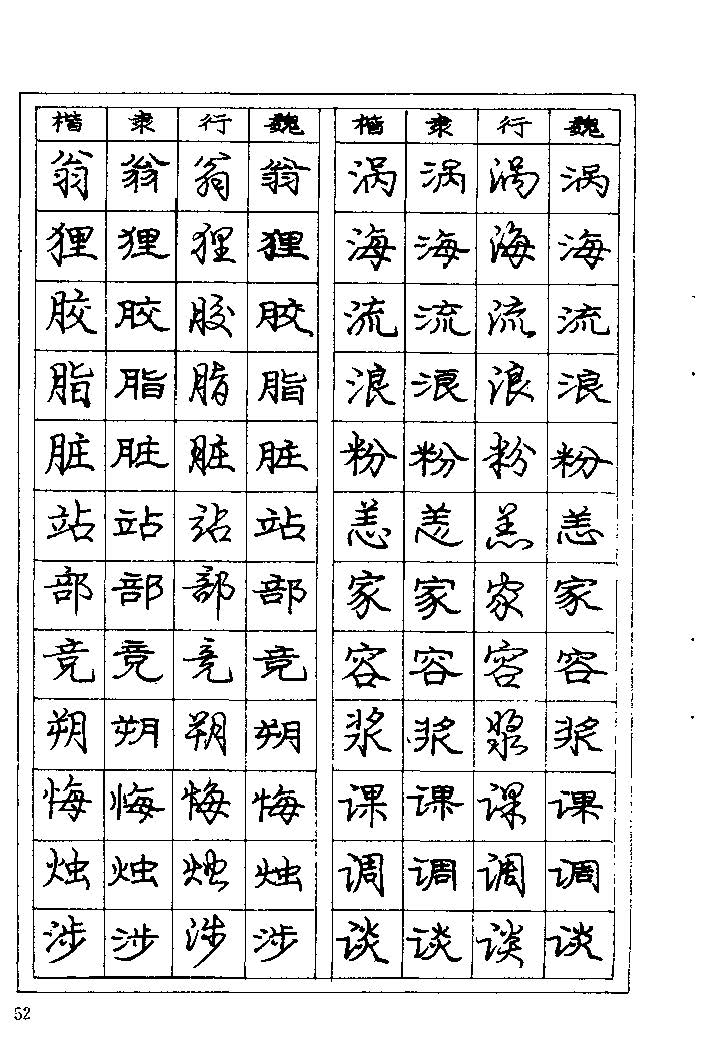 楷 隶 行 魏 楷 隶 行 魏
翁 翁 翁 翁 涡 涡 涡 涡
狸 狸 狸 狸 海 海 海 海
胶 胶 胶 胶 流 流 流 流
脂 脂 脂 脂 浪 浪 浪 浪
脏 脏 脏 脏 粉 粉 粉 粉
站 站 站 站 恙 恙 恙 恙
部 部 部 部 家 家 家 家
竞 竞 竞 竞 容 容 容 容
朔 朔 朔 朔 浆 浆 浆 浆
悔 悔 悔 悔 课 课 课 课
烛 烛 烛 烛 调 调 调 调
涉 涉 涉 涉 谈 谈 谈 谈
52